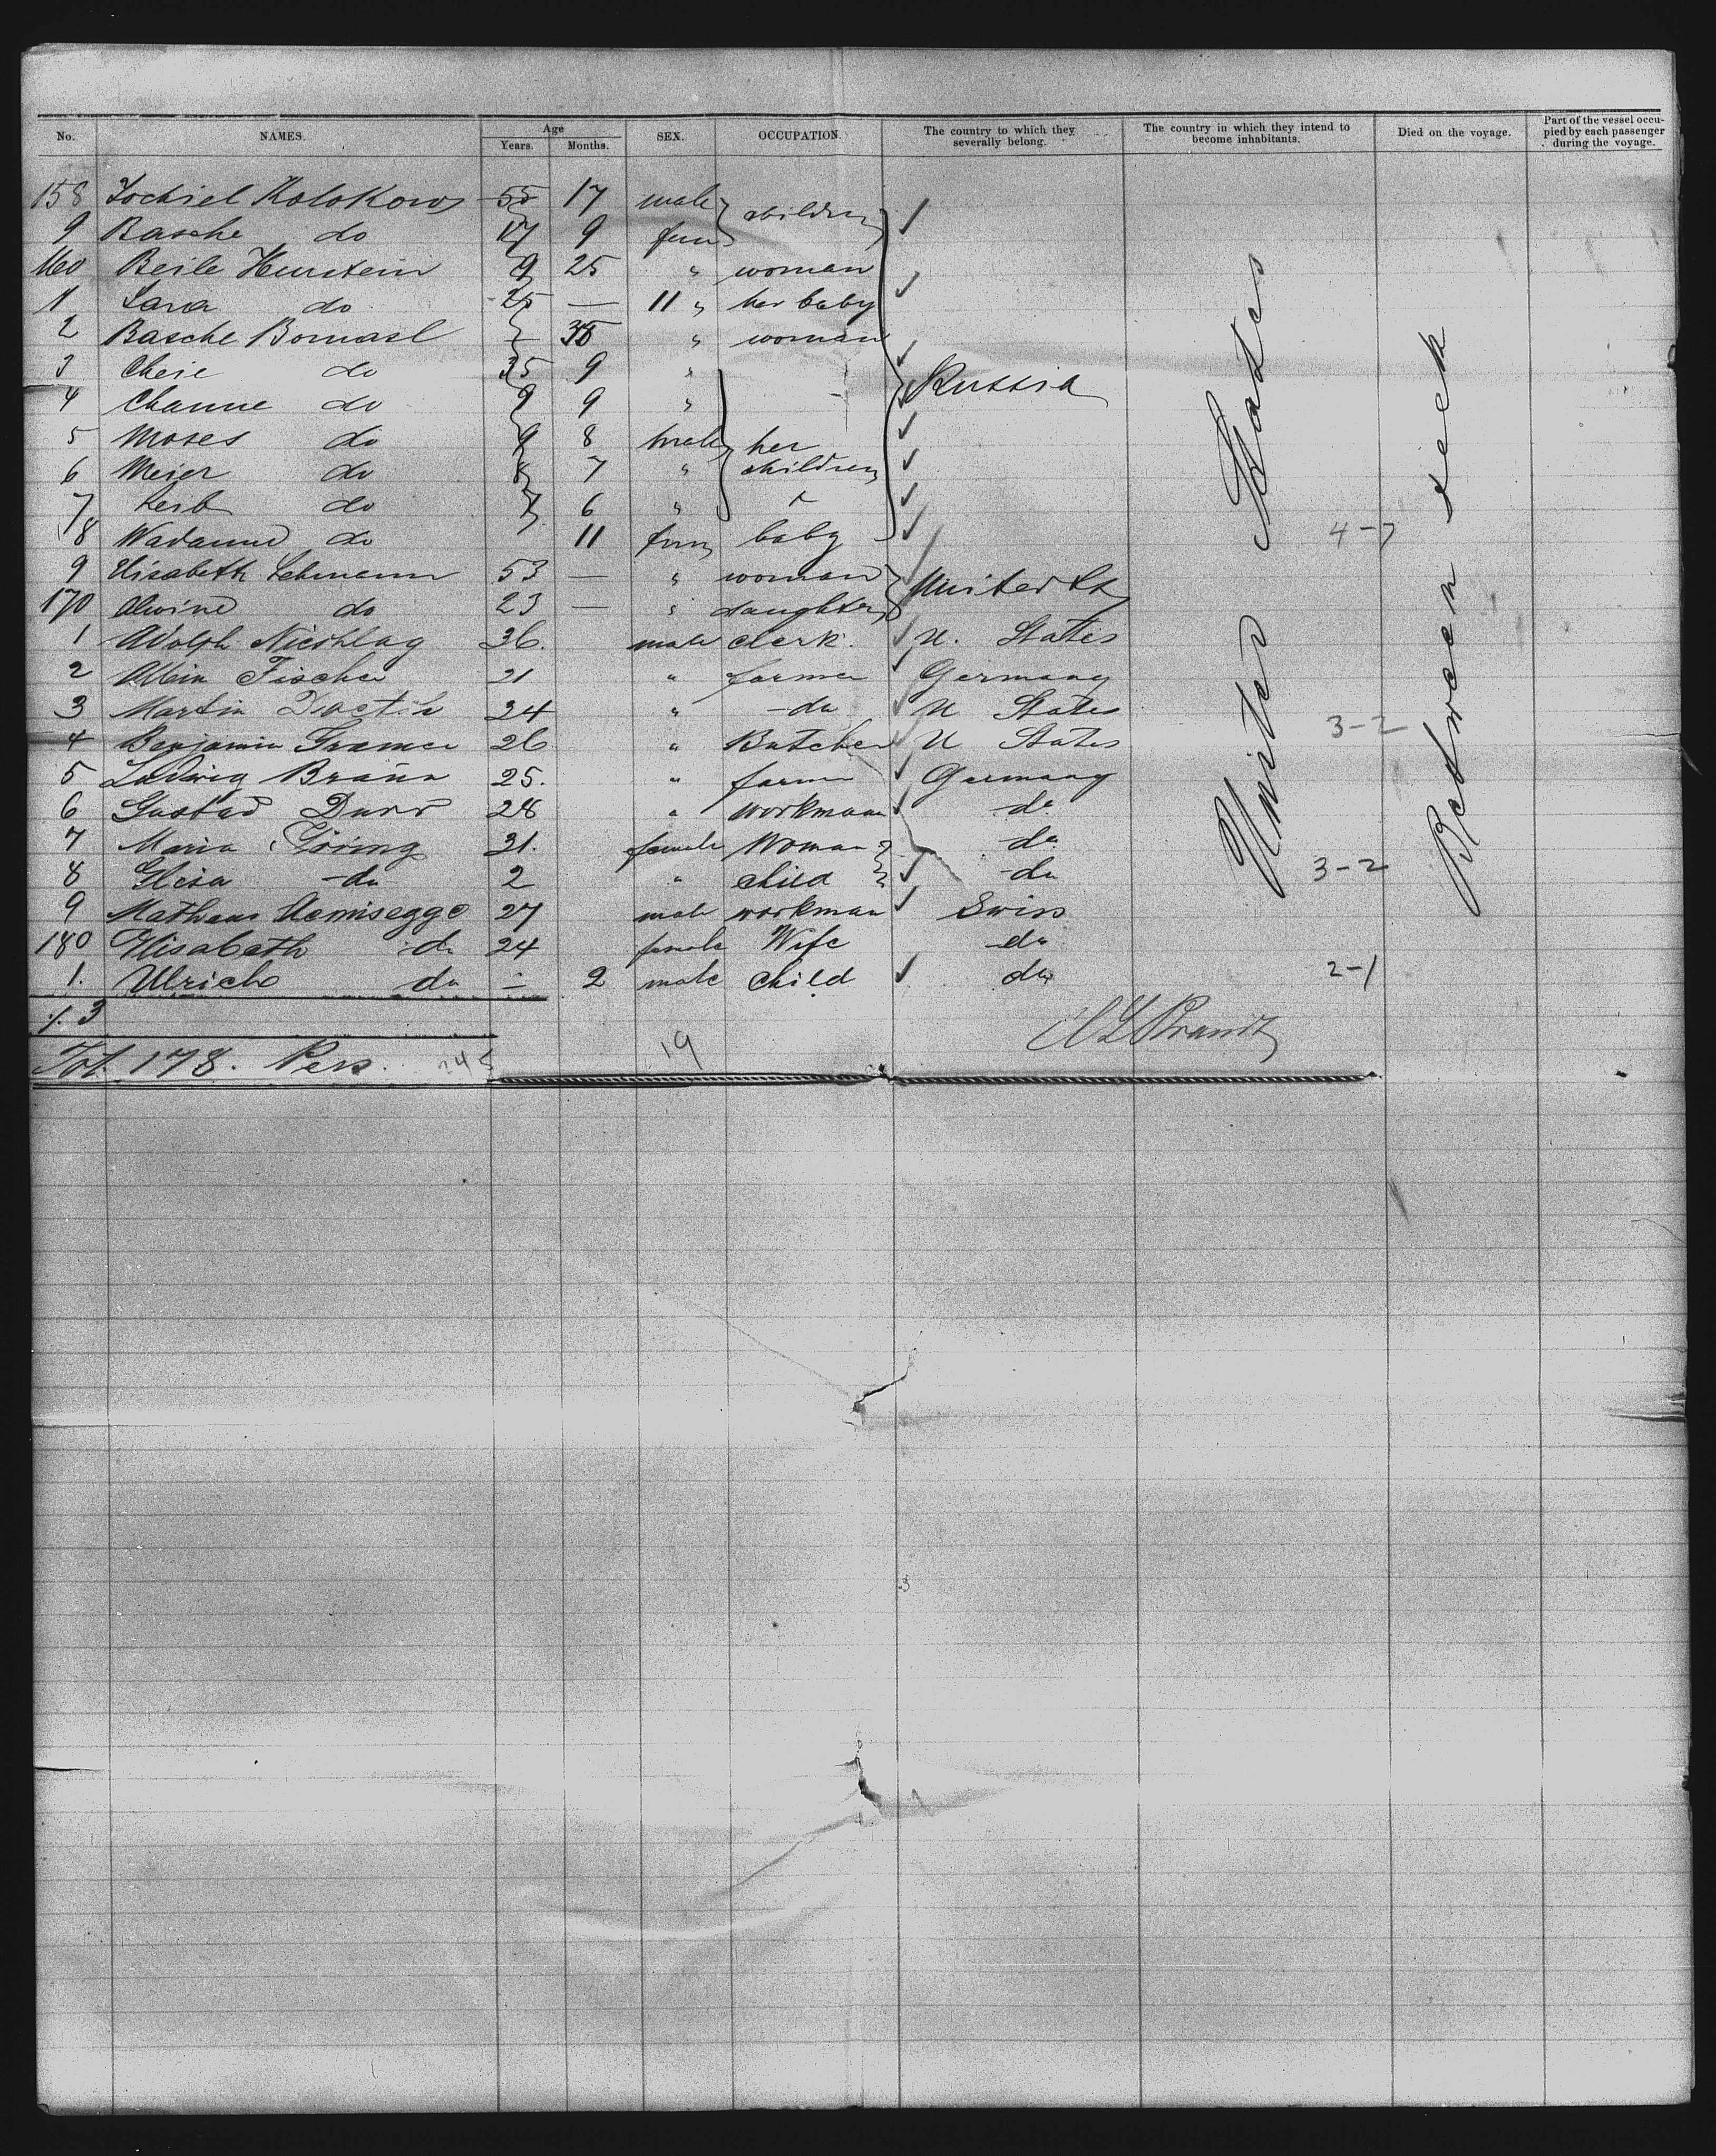 No. NAMES. Age Years. Months. SEX. OCCUPATION. The country to which they severally belong. The country in which they intend to become inhabitants. Died on the voyage. Part of the vessel occupied by each passenger during the voyage.
158 Kolokow 55 17 male children
9 Basche do 17 9 fem
160 Beile 9 25 " woman
1 Sara do 25 — 11 " her baby
2 Basche Bomasl — 35 " woman
3 Cheie do 35 9 "
Russia
4 Channe do 9 9 "
5 Moses do 9 8 male her
6 Meier do 8 7 " children
7 Leib do 7 6 "
8 do 11 fem baby
4-7
9 Elisabeth Lehmann 53 — " woman United St
170 Alwine do 23 — " daughter
1 Adolph 36. male clerk. U. States
2 Albin Fischer 21 " farmer Germany
3 Martin 24 " do U States
3-2
4 Benjamin 26 " Butcher U States
5 Ludwig Braun 25. " farmer Germany
6 Gustav Durr 28 " workman do
7 Maria 31. female Woman do
8 do 2 " child do
3-2
9 Aemisegge 27 male workman Swiss
180 Elisabeth do 24 female Wife do
1. Ulrich do — 2 male child do
2-1
United States
Between deck
./. 3
Tot. 178. Pers. 245
19
Brandt